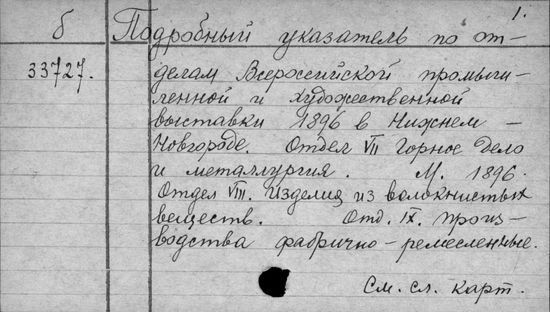 1.
б Подробный указатель по от-
33727. делам Всероссийской промыш-
ленной и художественной
выставки 1896 в Нижнем-
Новгороде. Отдел VII Горное Дело
и металлургия. М. 1896.
Отдел VIII. Изделия из волокнистых
веществ. Отд. IX. произ-
водства фабрично-ремесленные.
См. сл. карт.